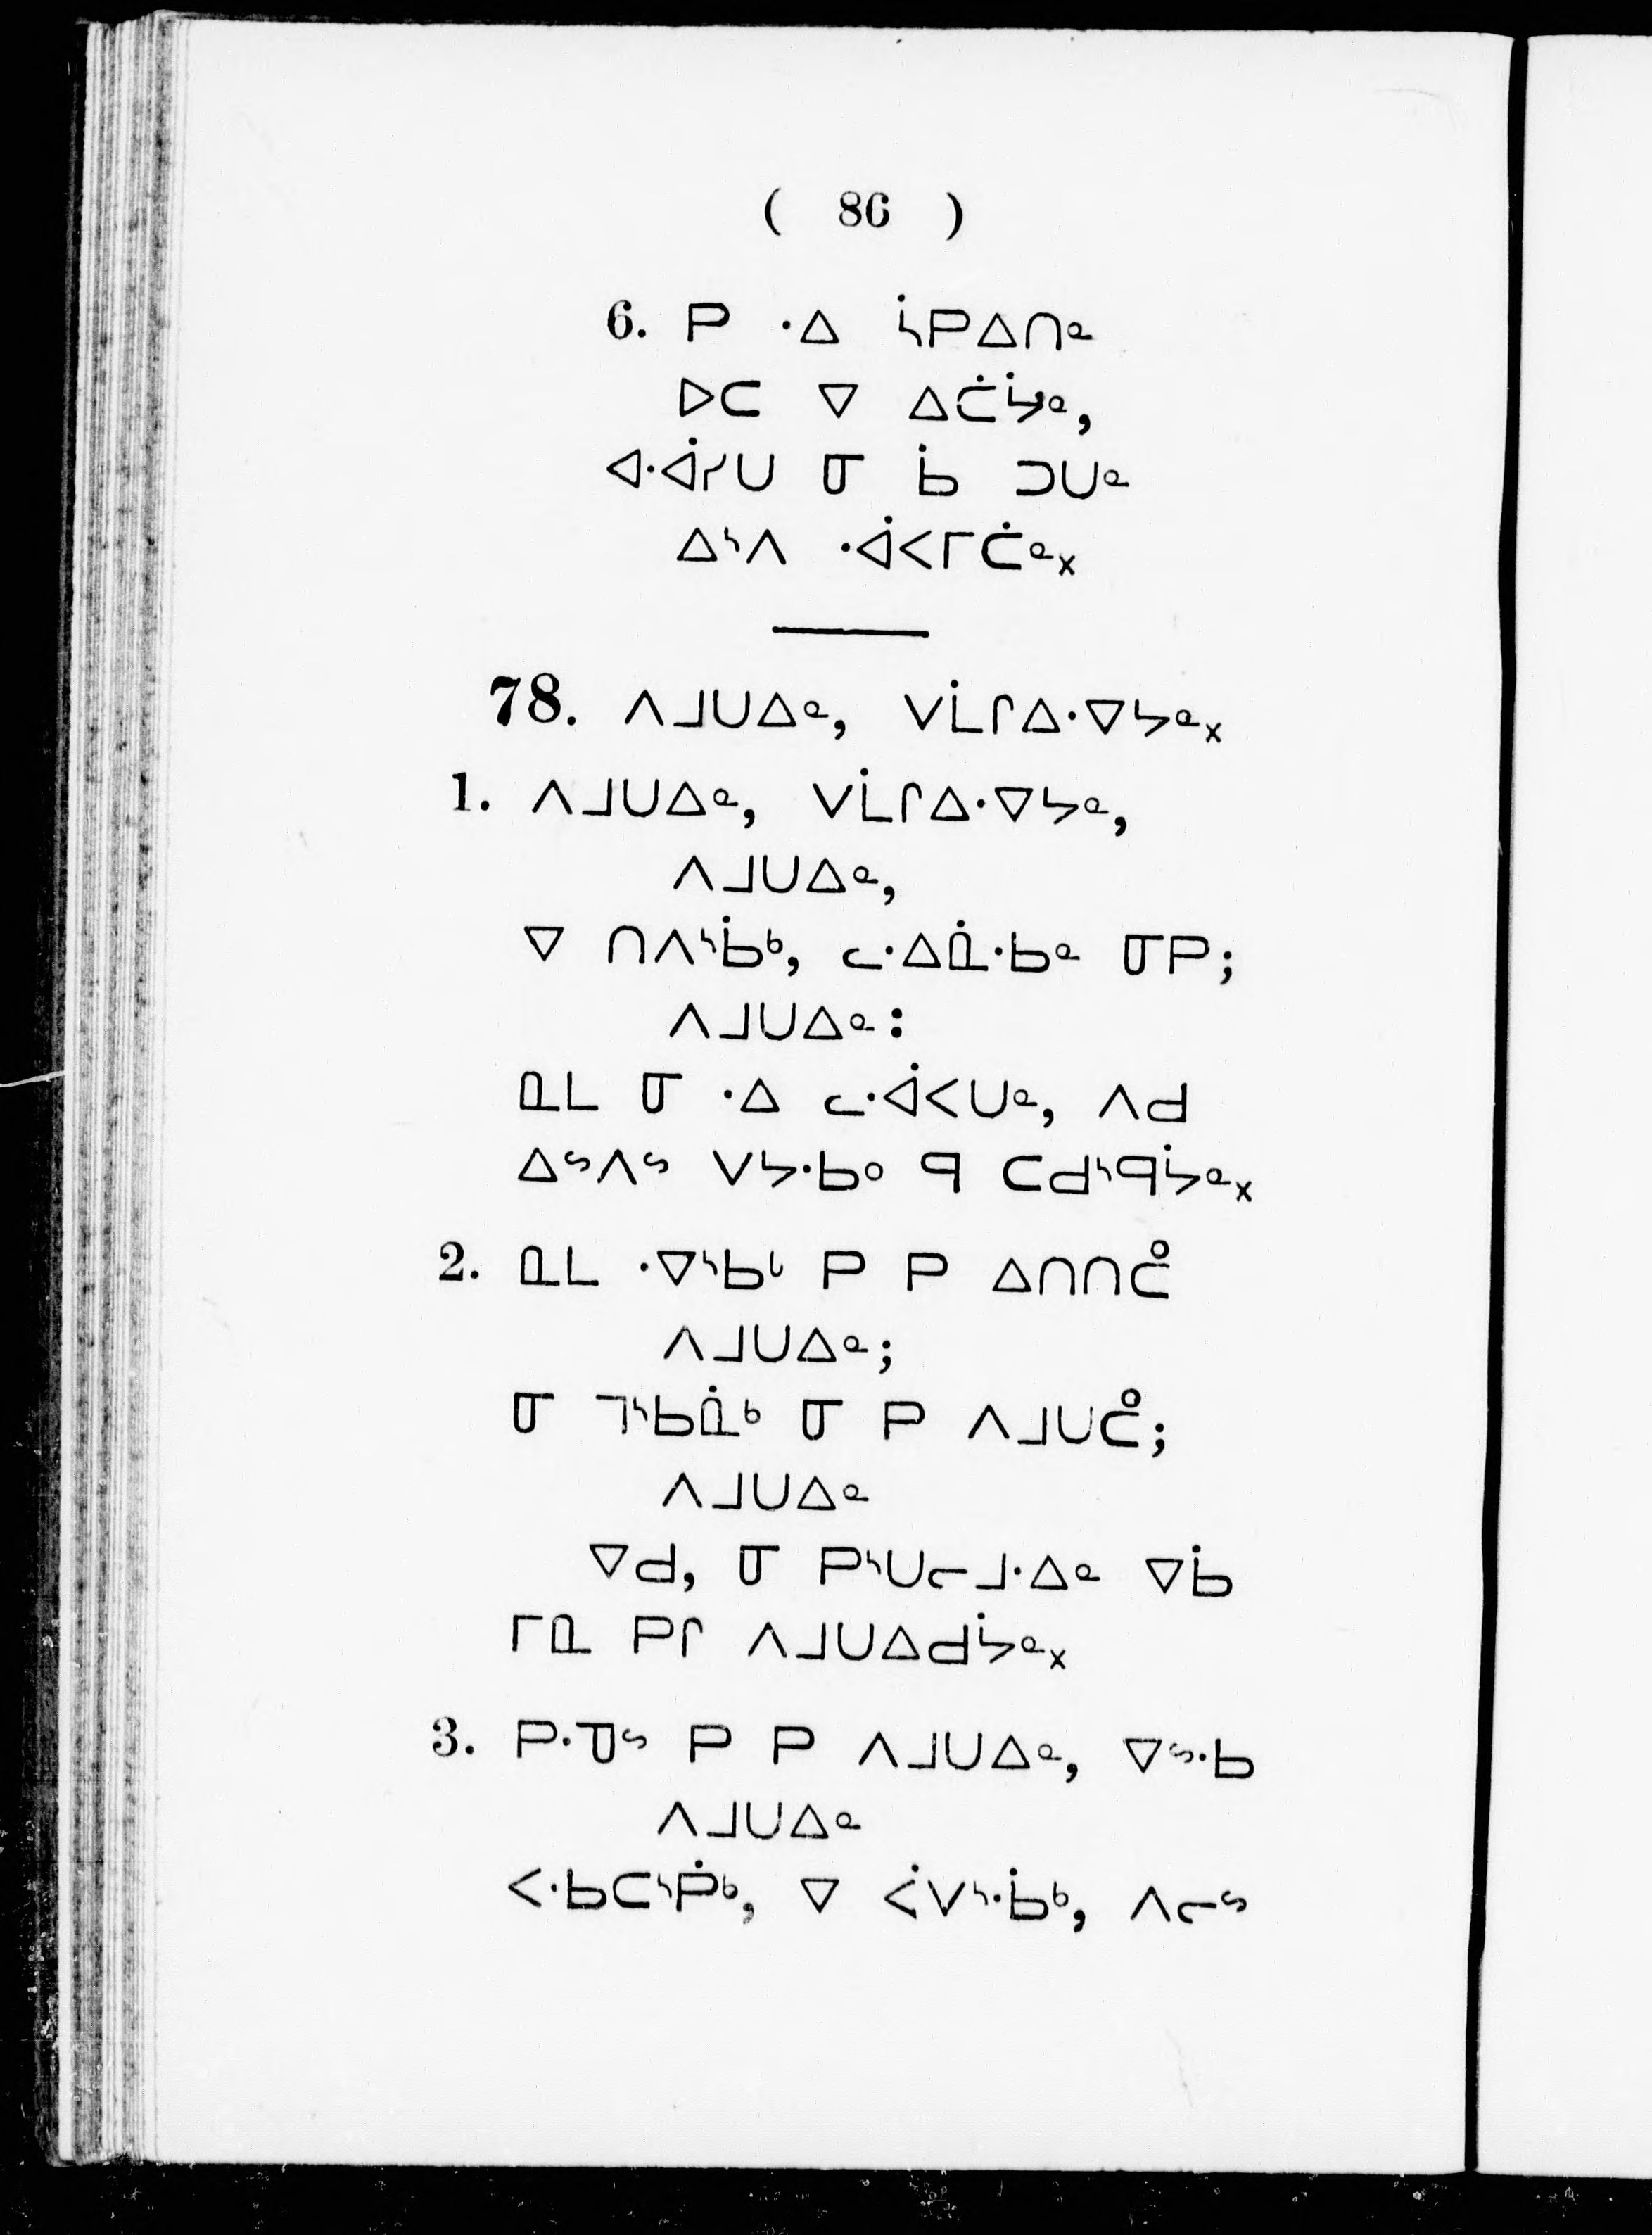 ( 86 )
6. ᑭ ᐧᐃ ᓵᑭᐃᑎᓐ
ᐅᑕ ᐁ ᐃᑖᔮᓐ,
ᐊᐧᐋᓯᑌ ᓂ ᑳ ᑐᑌᓐ
ᐃᔅᐱ ᐧᐋᐸᒥᑖᓐ᙮
78. ᐱᒧᑌᐃᓐ, ᐯᒫᒋᐃᐧᐁᔭᓐ᙮
1. ᐱᒧᑌᐃᓐ, ᐯᒫᒋᐃᐧᐁᔭᓐ,
ᐱᒧᑌᐃᓐ,
ᐁ ᑎᐱᔅᑳᒃ, ᓚᐧᐃᓈᐧᑲᓐ ᓂᑭ;
ᐱᒧᑌᐃᓐ:
ᓇᒪ ᓂ ᐧᐃ ᓚᐧᐋᐸᑌᓐ, ᐱᑯ
ᐃᔥᐱᔥ ᐯᔭᐧᑲᐤ ᑫ ᑕᑯᔅᑫᔮᓐ᙮
2. ᓇᒪ ᐧᐁᔅᑲᒡ ᑭ ᑭ ᐃᑎᑎᑖᐤ
ᐱᒧᑌᐃᓐ;
ᓂ ᒣᔅᑲᓈᒃ ᓂ ᑭ ᐱᒧᑌᑖᐤ;
ᐱᒧᑌᐃᓐ
ᐁᑯ, ᓂ ᑭᔅᑌᓕᒧᐧᐃᓐ ᐁᑳ
ᒥᓇ ᑭᒋ ᐱᒧᑌᐃᑯᔮᓐ᙮
3. ᑭᐧᓀᔥ ᑭ ᑭ ᐱᒧᑌᐃᓐ, ᐁᔥᐧᑲ
ᐱᒧᑌᐃᓐ
ᐸᐧᑲᑕᔅᑮᒃ, ᐁ ᐹᐯᔅᐧᑳᒃ, ᐱᓕᔥ